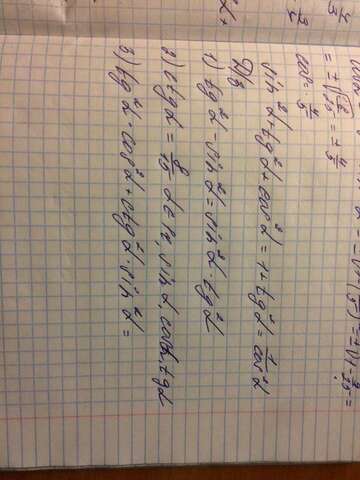 = ±√16/25 = ± 4/5
cos = 4/5
sin²α + tg²α + cos²α = 1 + tg²α = 1/cos²α
Д/з
1) tg²α - sin²α = sin²α · tg²α
2) ctgα = 8/15 sinα, cosα, tgα
3) tg²α · cos²α + ctg²α · sin²α =